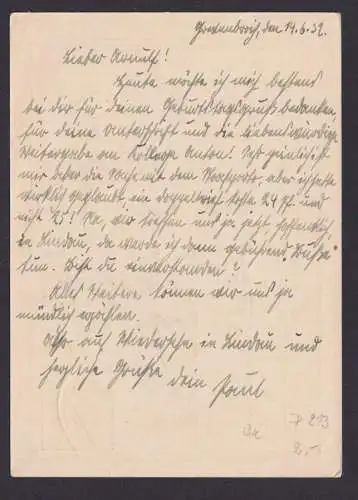 Grevenbroich, den 14.6.32.
Lieber Arnulf!
Heute möchte ich mich bestens
bei dir für deinen Geburtstagsgruß bedanken,
für deine Anschrift und die liebenswürdige
Weitergabe an Kollege Anton! Sehr peinlich ist
mir aber die Sache mit dem Porto, aber ich hatte
wirklich geglaubt, ein Doppelbrief koste 24 Pf. und
nicht 25! Na, wir treffen uns ja jetzt hoffentlich
in Lindau, da werde ich dann gebührend „Buße"
tun. Bist du einverstanden?
Alles Weitere können wir uns ja
mündlich erzählen.
Also auf Wiedersehn in Lindau und
herzliche Grüße dein Paul
P 213
2,-